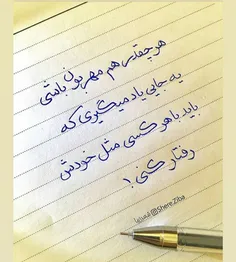 هر چقدر هم مهربون باشی
یه جایی یاد میگیری که
باید با هر کسی مثل خودش
رفتار کنی!
@Shere.Ziba